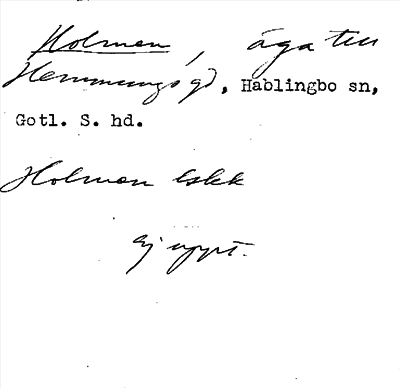 Holmen, äga till
Hemmungs gd, Hablingbo sn,
Gotl. S. hd.
Holmen lskk
Ej uppt.